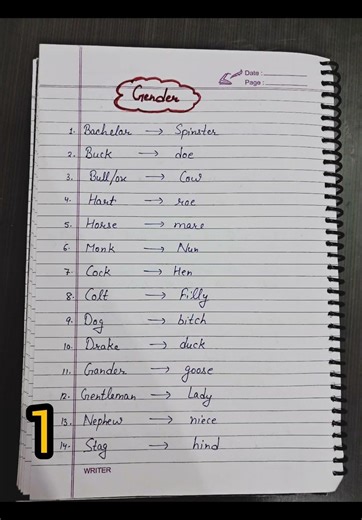 Date :
Page :
Gender
1. Bachelor → Spinster
2. Buck → doe
3. Bull/ox → Cow
4. Hart → roe
5. Horse → mare
6. Monk → Nun
7. Cock → Hen
8. Colt → Filly
9. Dog → bitch
10. Drake → duck
11. Gander → goose
12. Gentleman → Lady
13. Nephew → niece
14. Stag → hind
1
WRITER